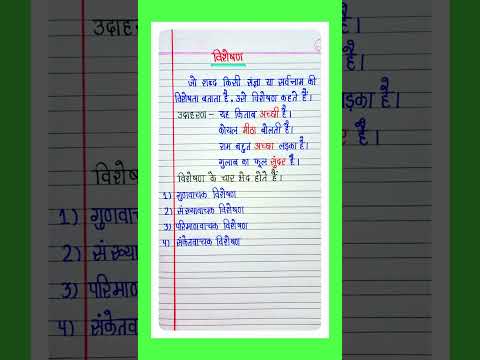 विशेषण
जो शब्द किसी संज्ञा या सर्वनाम की
विशेषता बताता है, उसे विशेषण कहते हैं।
उदाहरण - यह किताब अच्छी है।
कोयल मीठा बोलती है।
राम बहुत अच्छा लड़का है।
गुलाब का फूल सुंदर है।
विशेषण के चार भेद होते हैं।
1) गुणवाचक विशेषण
2) संख्यावाचक विशेषण
3) परिमाणवाचक विशेषण
4) संकेतवाचक विशेषण